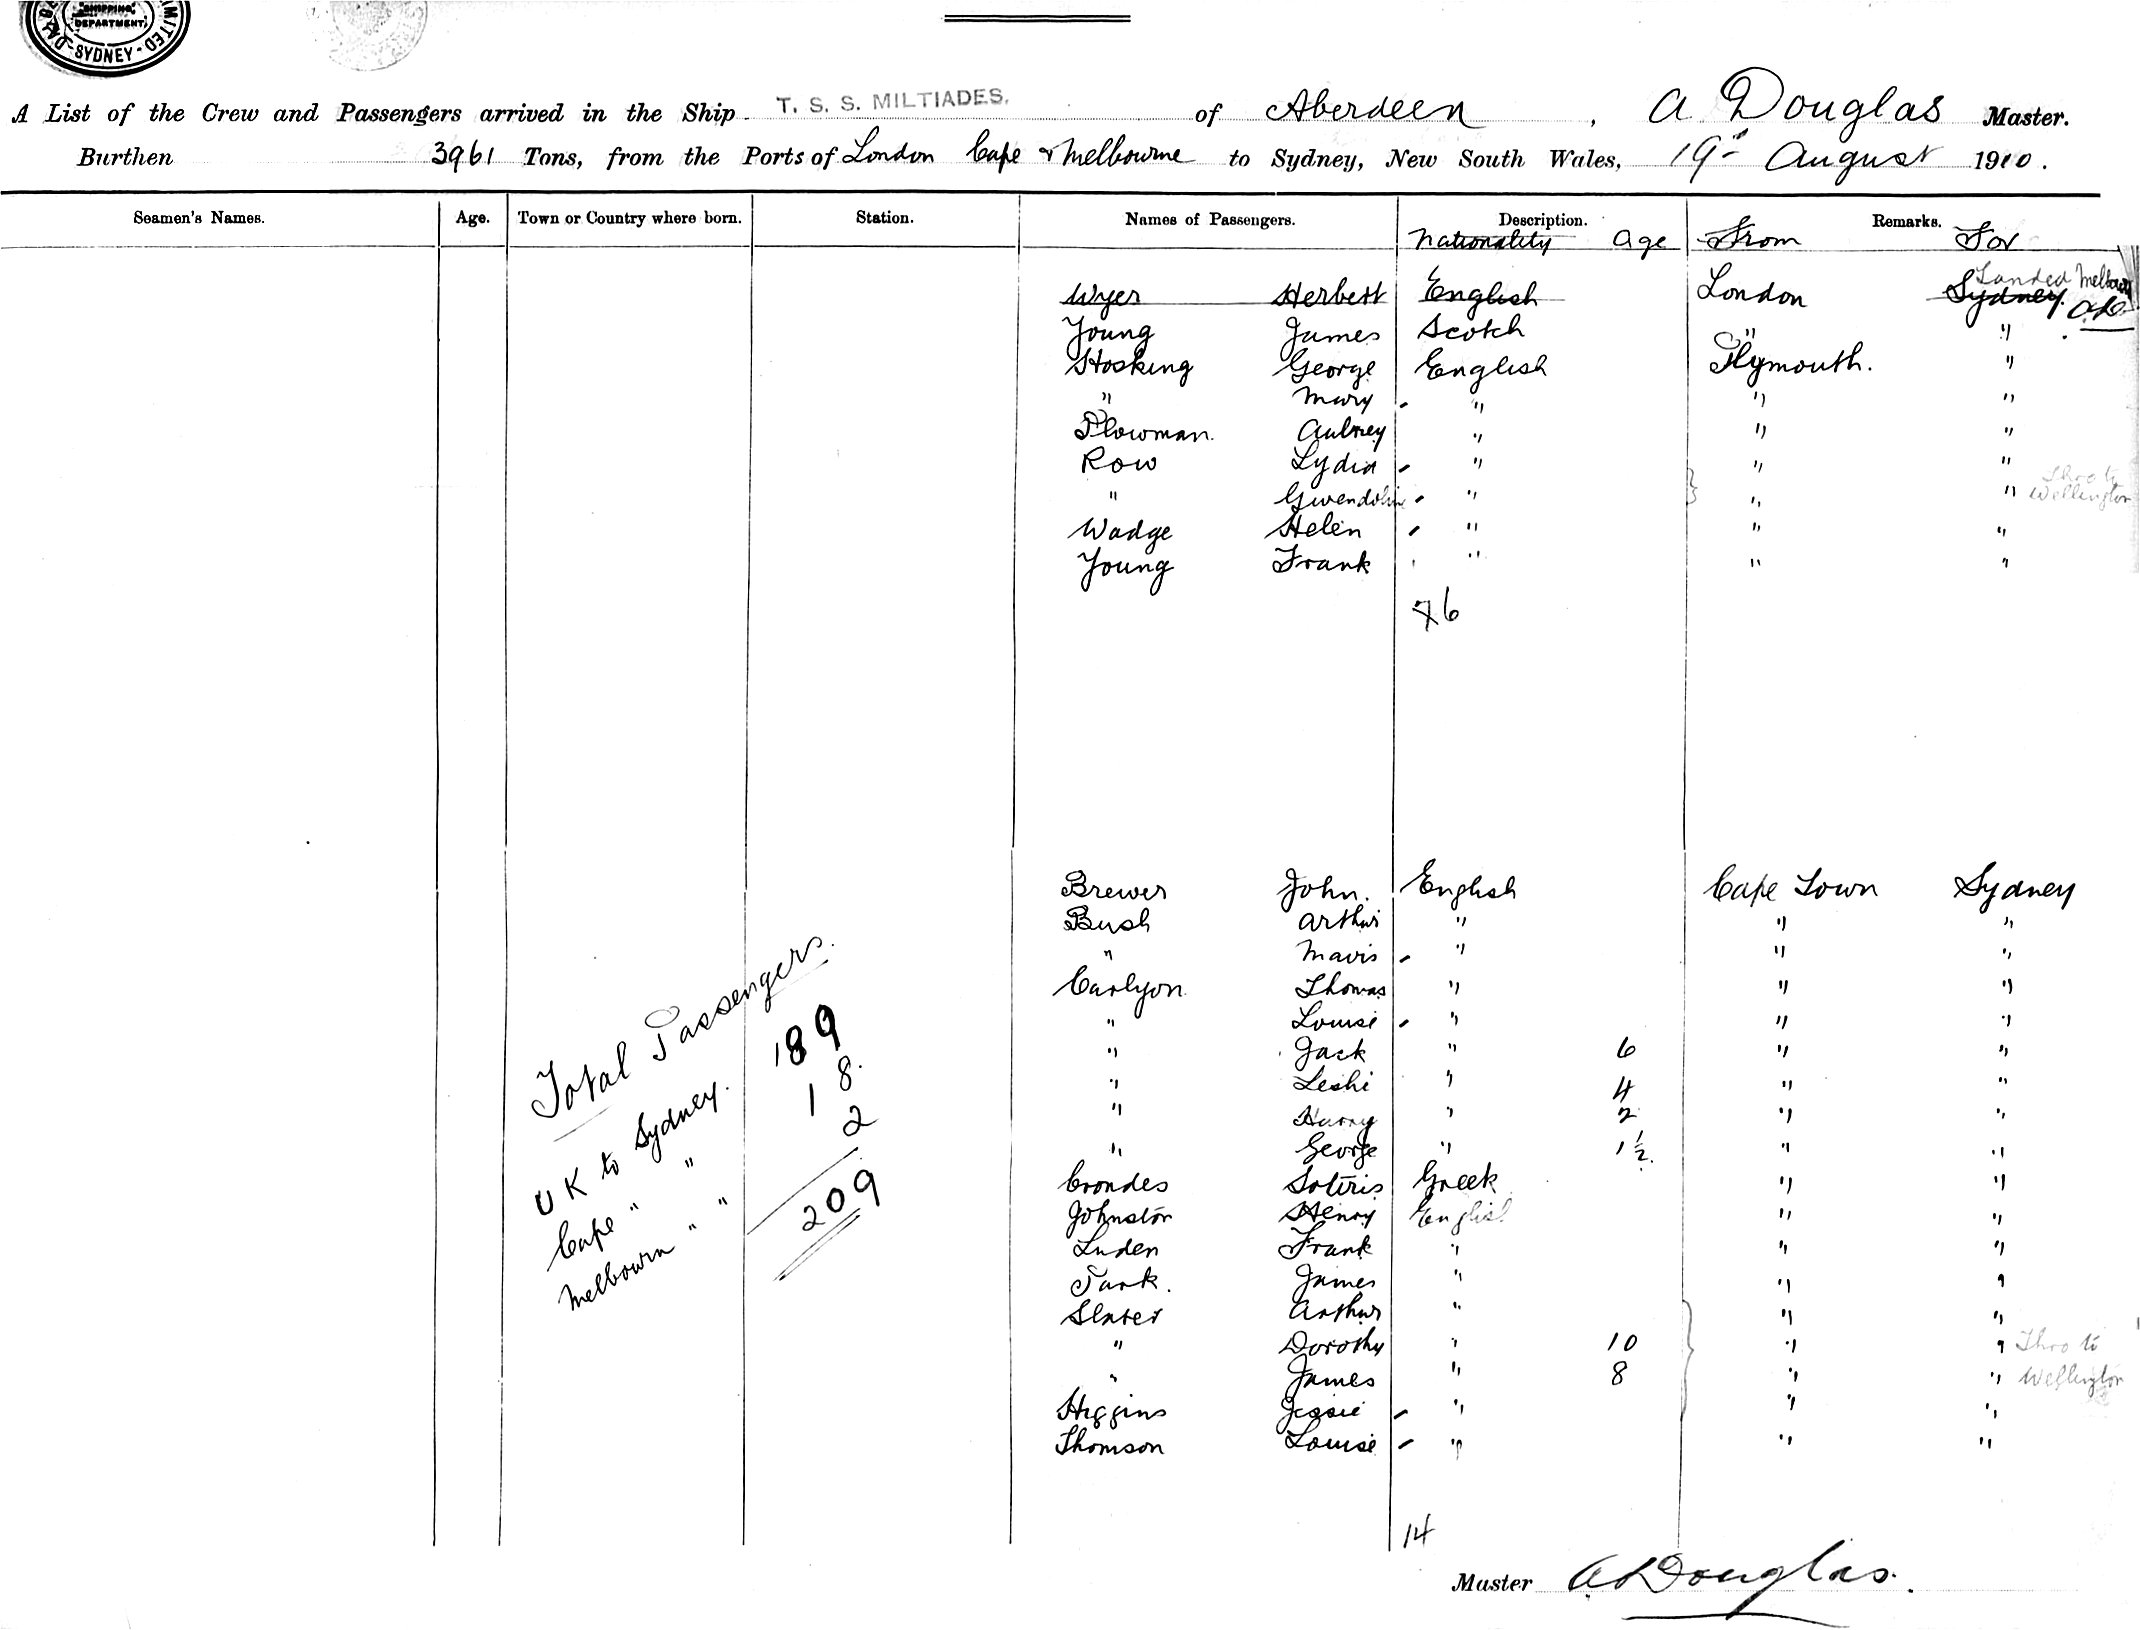 SHIPPING
DEPARTMENT,
SYDNEY
A List of the Crew and Passengers arrived in the Ship T. S. S. MILTIADES. of Aberdeen, A Douglas Master.
Burthen 3961 Tons, from the Ports of London Cape & Melbourne to Sydney, New South Wales, 19th August 1910.
Seamen's Names. Age. Town or Country where born. Station. Names of Passengers. Description. Remarks.
Nationality Age From For
Landed Melbourne
Wyer Herbert English London Sydney.
Young James Scotch " "
Hosking George English Plymouth. "
" Mary " " "
Plowman. Aubrey " " "
Row Lydia " " "
Thro to
" Gwendoline " " " Wellington
Wadge Helen " " "
Young Frank " " "
76
Brewer John. English Cape Town Sydney
Bush Arthur " " "
" Mavis " " "
Carlyon Thomas " " "
" Louise " " "
" Jack " 6 " "
" Leslie " 4 " "
" Harry " 2 " "
" George " 1½ " "
Crondes Soteris Greek " "
Johnston Henry English " "
Luden Frank " " "
Park. James " " "
Slater Arthur " " "
" Dorothy " 10 " " Thro to
" James " 8 " " Wellington
Higgins Jessie " " "
Thomson Louise " " "
14
Total Passengers.
UK to Sydney. 189
Cape " " 18.
Melbourn " " 2
209
Master A Douglas.